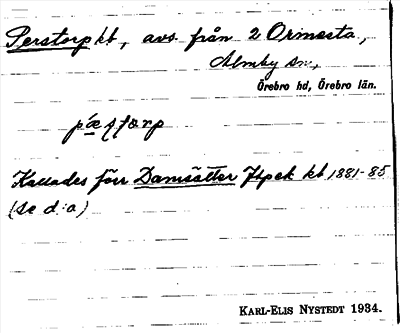 Perstorp kt, avs. från 2 Ormesta,
Almby sn.,
Örebro hd, Örebro län.
Kallades förr Damsätter Jtpek kt 1881-85
(se d:a)
KARL-ELIS NYSTEDT 1934.